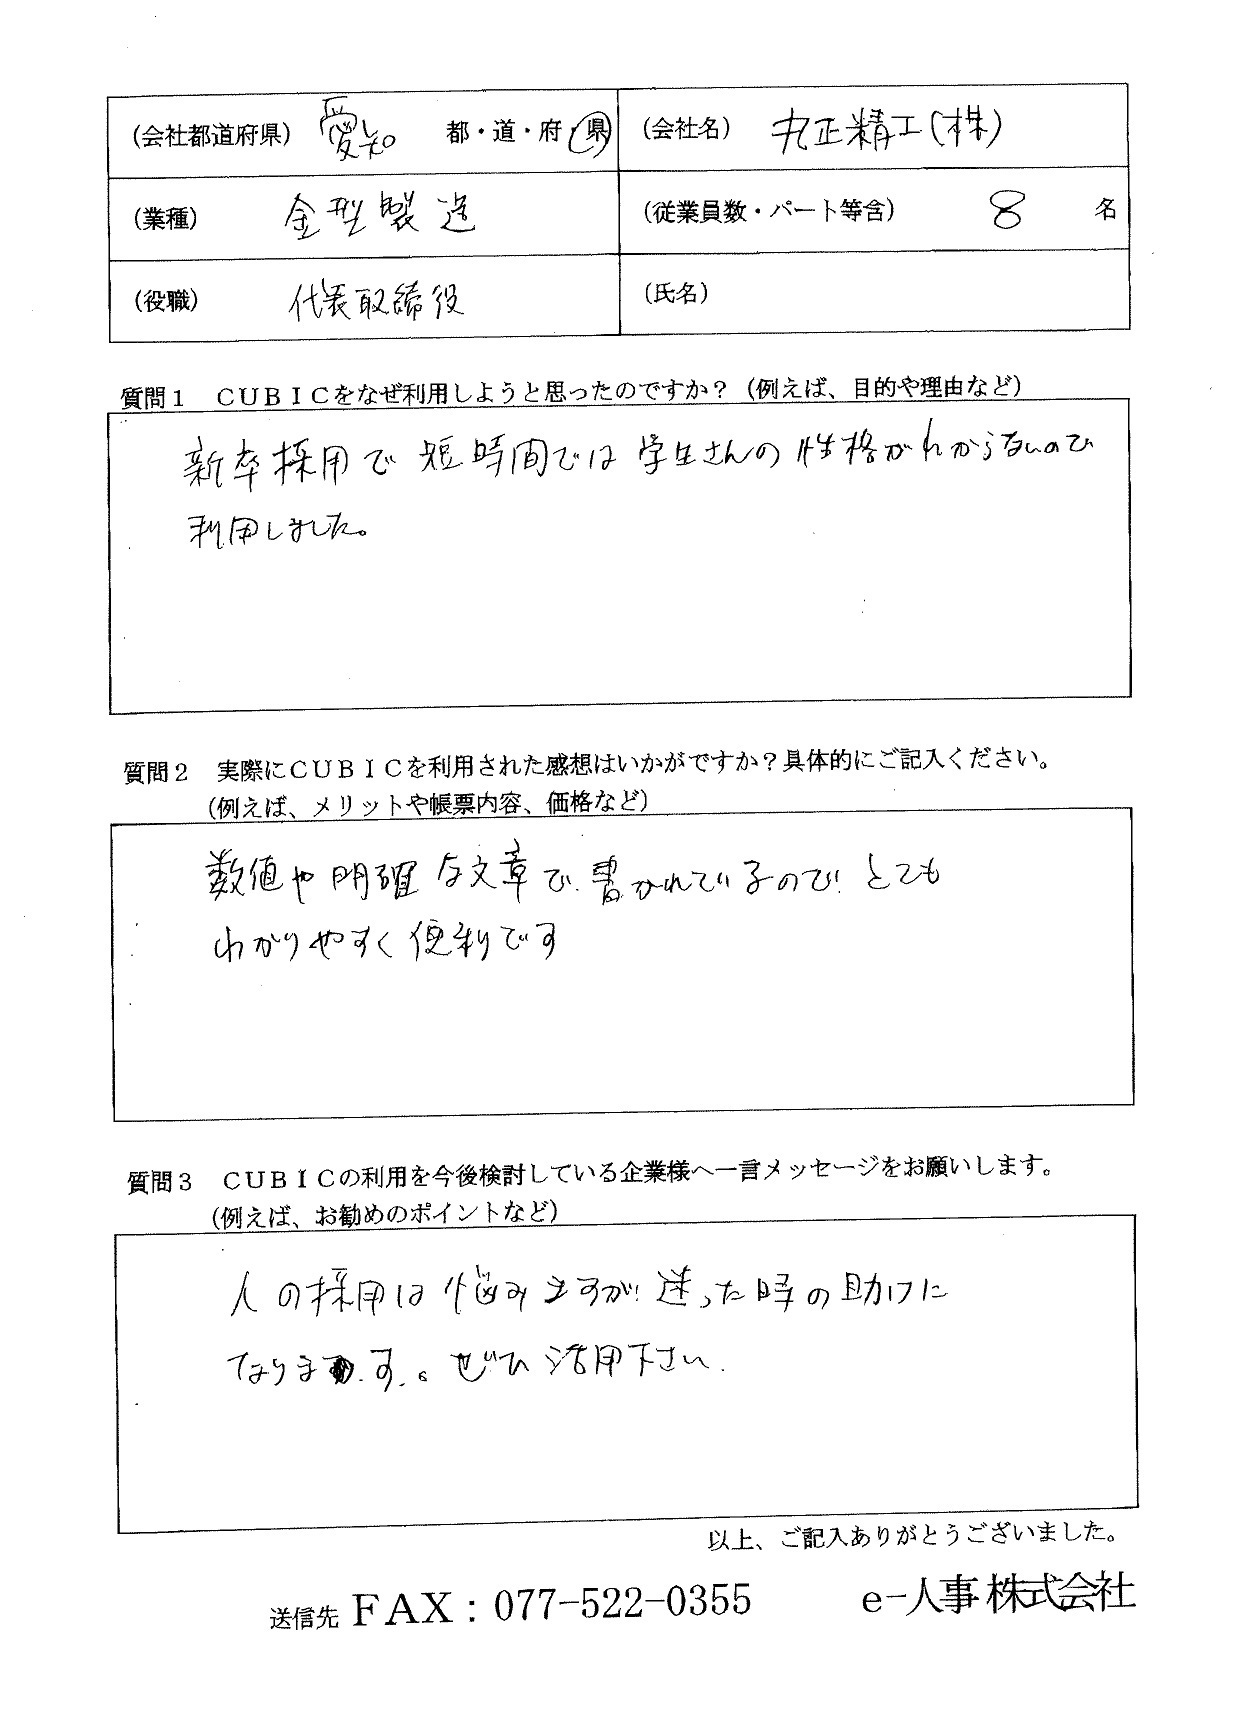 (会社都道府県) 愛知 都・道・府・県 (会社名) 丸正精工(株)
(業種) 金型製造 (従業員数・パート等含) 8 名
(役職) 代表取締役 (氏名)
質問1 CUBICをなぜ利用しようと思ったのですか?(例えば、目的や理由など)
新卒採用で短時間では学生さんの性格がわからないので
利用しました。
質問2 実際にCUBICを利用された感想はいかがですか?具体的にご記入ください。
(例えば、メリットや帳票内容、価格など)
数値や明確な文章で書かれているのでとても
わかりやすく便利です
質問3 CUBICの利用を今後検討している企業様へ一言メッセージをお願いします。
(例えば、お勧めのポイントなど)
人の採用は悩みますが迷った時の助けに
なります。ぜひ活用下さい.
以上、ご記入ありがとうございました。
送信先 FAX:077-522-0355 e-人事株式会社